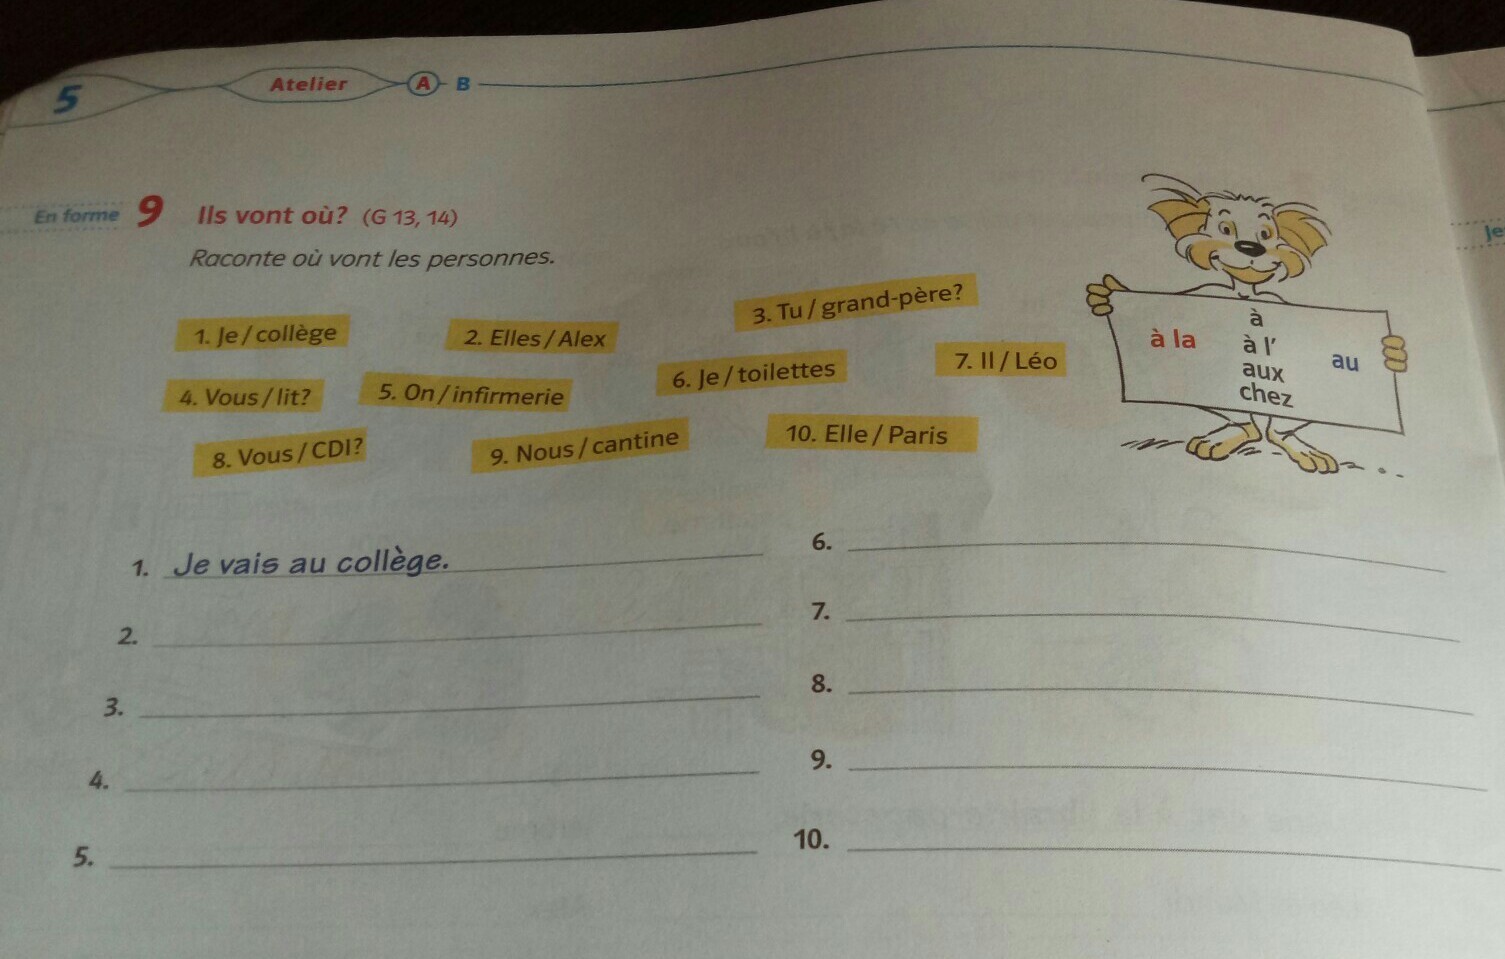 5 Atelier A B
En forme 9 Ils vont où? (G 13, 14)
Je
Raconte où vont les personnes.
1. Je / collège
2. Elles / Alex
3. Tu / grand-père?
4. Vous / lit?
5. On / infirmerie
6. Je / toilettes
7. Il / Léo
8. Vous / CDI?
9. Nous / cantine
10. Elle / Paris
à la
à
à l'
aux
chez
au
1. Je vais au collège.
2.
3.
4.
5.
6.
7.
8.
9.
10.